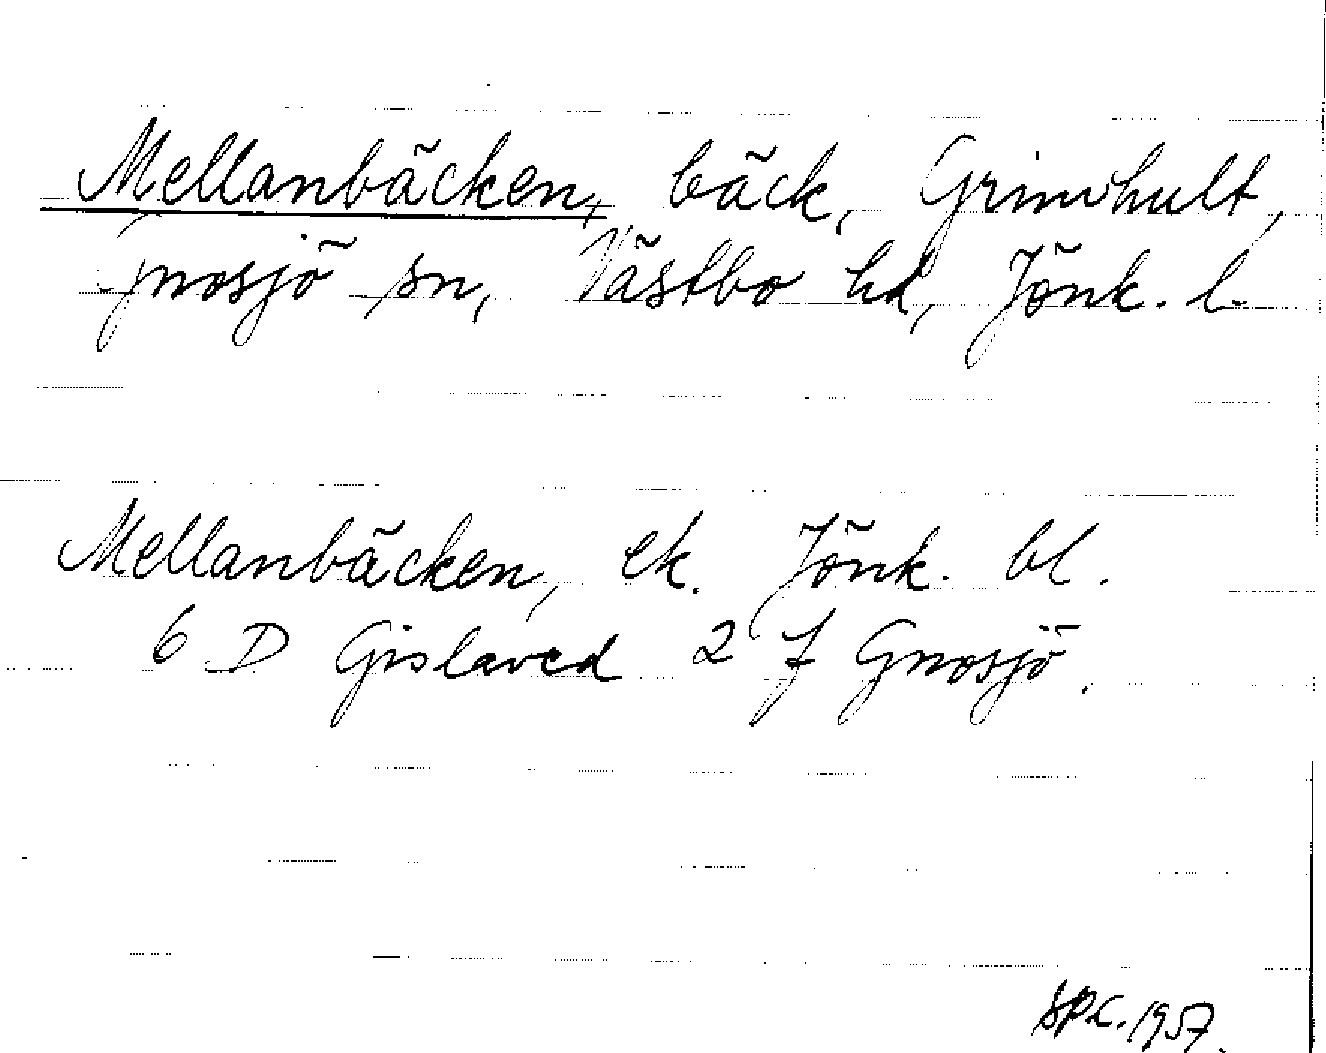 Mellanbäcken, bäck, Grimshult,
Gnosjö sn, Västbo hd, Jönk. l.
Mellanbäcken, ek. Jönk. bl.
6 D Gislaved 2 f Gnosjö.
1957.